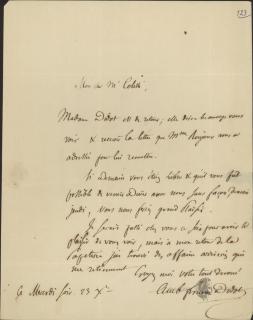 123
Mon cher Mr Coletti,
Madame Didot est de retour, elle désire beaucoup vous
voir & recevoir la lettre que Mme vous a
adressée pour lui remettre.
Si demain vous étiez libre & qu'il vous fût
possible de venir dîner avec nous sans façon demain
jeudi, vous nous feriez grand plaisir.
Je serais passé chez vous ces jours pour avoir le
plaisir de vous voir, mais à mon retour de la
papeterie j'ai trouvé des affaires arriérées qui
me retiennent. Croyez moi votre tout dévoué
Amb Firmin Didot
Ce Mercredi soir 23 Xbre